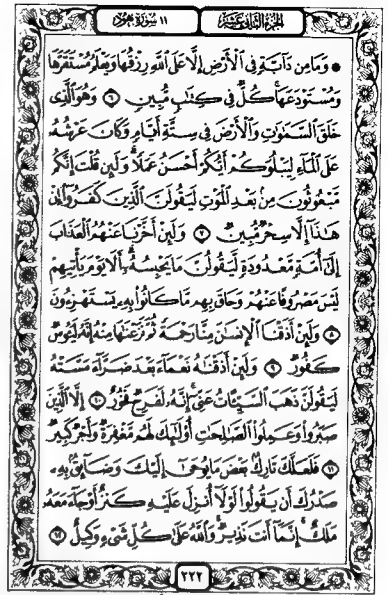 الجزء الثاني عشر
١١ سورة هود
۞ وَمَا مِن دَآبَّةٍ فِى ٱلْأَرْضِ إِلَّا عَلَى ٱللَّهِ رِزْقُهَا وَيَعْلَمُ مُسْتَقَرَّهَا
وَمُسْتَوْدَعَهَا ۚ كُلٌّ فِى كِتَٰبٍ مُّبِينٍ ۝٦ وَهُوَ ٱلَّذِى
خَلَقَ ٱلسَّمَٰوَٰتِ وَٱلْأَرْضَ فِى سِتَّةِ أَيَّامٍ وَكَانَ عَرْشُهُۥ
عَلَى ٱلْمَآءِ لِيَبْلُوَكُمْ أَيُّكُمْ أَحْسَنُ عَمَلًا ۗ وَلَئِن قُلْتَ إِنَّكُم
مَّبْعُوثُونَ مِنۢ بَعْدِ ٱلْمَوْتِ لَيَقُولَنَّ ٱلَّذِينَ كَفَرُوٓا۟ إِنْ
هَٰذَآ إِلَّا سِحْرٌ مُّبِينٌ ۝٧ وَلَئِنْ أَخَّرْنَا عَنْهُمُ ٱلْعَذَابَ
إِلَىٰٓ أُمَّةٍ مَّعْدُودَةٍ لَّيَقُولُنَّ مَا يَحْبِسُهُۥٓ ۗ أَلَا يَوْمَ يَأْتِيهِمْ
لَيْسَ مَصْرُوفًا عَنْهُمْ وَحَاقَ بِهِم مَّا كَانُوا۟ بِهِۦ يَسْتَهْزِءُونَ
۝٨ وَلَئِنْ أَذَقْنَا ٱلْإِنسَٰنَ مِنَّا رَحْمَةً ثُمَّ نَزَعْنَٰهَا مِنْهُ إِنَّهُۥ لَيَـُٔوسٌ
كَفُورٌ ۝٩ وَلَئِنْ أَذَقْنَٰهُ نَعْمَآءَ بَعْدَ ضَرَّآءَ مَسَّتْهُ
لَيَقُولَنَّ ذَهَبَ ٱلسَّيِّـَٔاتُ عَنِّىٓ ۚ إِنَّهُۥ لَفَرِحٌ فَخُورٌ ۝١٠ إِلَّا ٱلَّذِينَ
صَبَرُوا۟ وَعَمِلُوا۟ ٱلصَّٰلِحَٰتِ أُو۟لَٰٓئِكَ لَهُم مَّغْفِرَةٌ وَأَجْرٌ كَبِيرٌ
۝١١ فَلَعَلَّكَ تَارِكٌۢ بَعْضَ مَا يُوحَىٰٓ إِلَيْكَ وَضَآئِقٌۢ بِهِۦ
صَدْرُكَ أَن يَقُولُوا۟ لَوْلَآ أُنزِلَ عَلَيْهِ كَنزٌ أَوْ جَآءَ مَعَهُۥ
مَلَكٌ ۚ إِنَّمَآ أَنتَ نَذِيرٌ ۚ وَٱللَّهُ عَلَىٰ كُلِّ شَىْءٍ وَكِيلٌ ۝١٢
٢٢٢